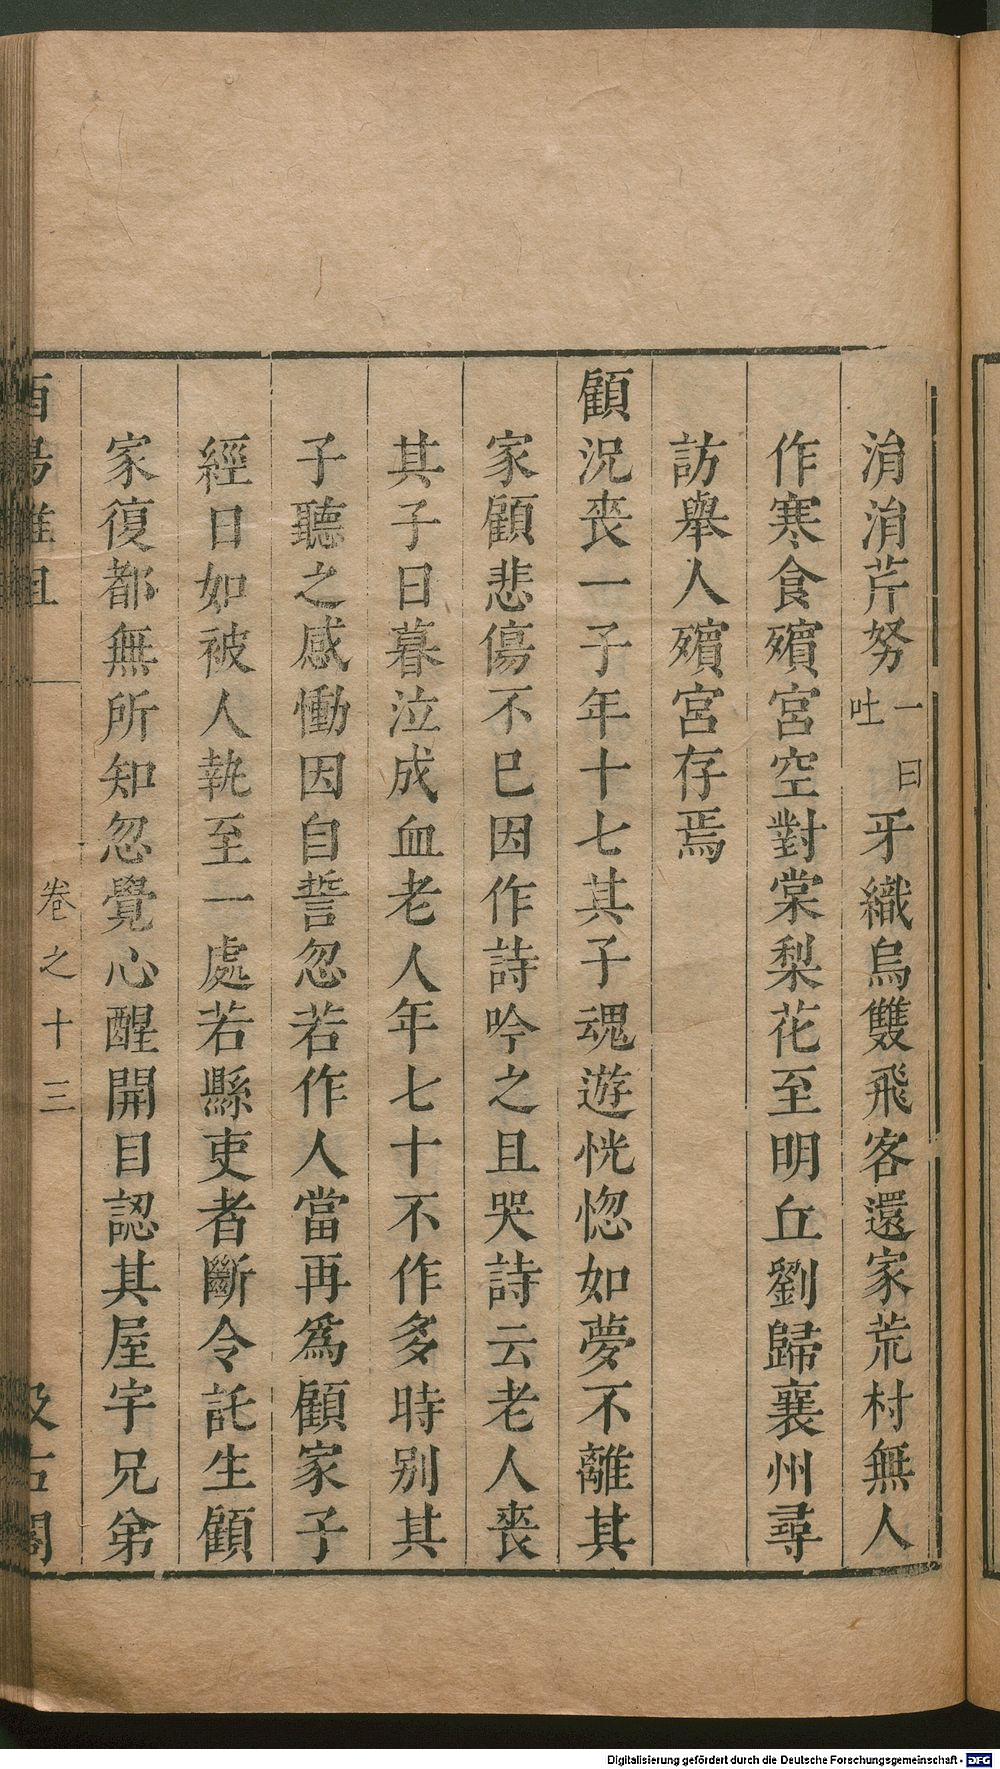 涓涓芹努一曰吐牙織烏雙飛客還家荒村無人
作寒食殯宮空對棠梨花至明丘劉歸襄州尋
訪舉人殯宮存焉
顧況喪一子年十七其子魂遊恍惚如夢不離其
家顧悲傷不巳因作詩吟之且哭詩云老人喪
其子日暮泣成血老人年七十不作多時別其
子聽之感慟因自誓忽若作人當再爲顧家子
經日如被人執至一處若縣吏者斷令託生顧
家復都無所知忽覺心醒開目認其屋宇兄弟
酉陽雜俎 卷之十三 汲古閣
Digitalisierung gefördert durch die Deutsche Forschungsgemeinschaft - DFG